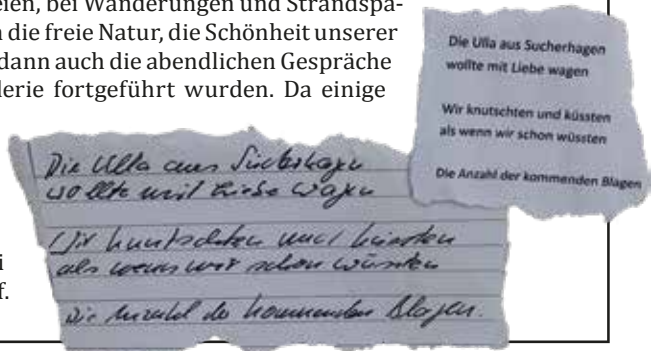 eien, bei Wanderungen und Strandspa-
n die freie Natur, die Schönheit unserer
dann auch die abendlichen Gespräche
lerie fortgeführt wurden. Da einige
i
f.
Die Ulla aus Sucherhagen
wollte mit Liebe wagen
Wir knutschten und küssten
als wenn wir schon wüssten
Die Anzahl der kommenden Blagen
Die Ulla aus Sucherhagen
wollte mit Liebe wagen
Wir knutschten und küssten
als wenn wir schon wüssten
Die Anzahl der kommenden Blagen.